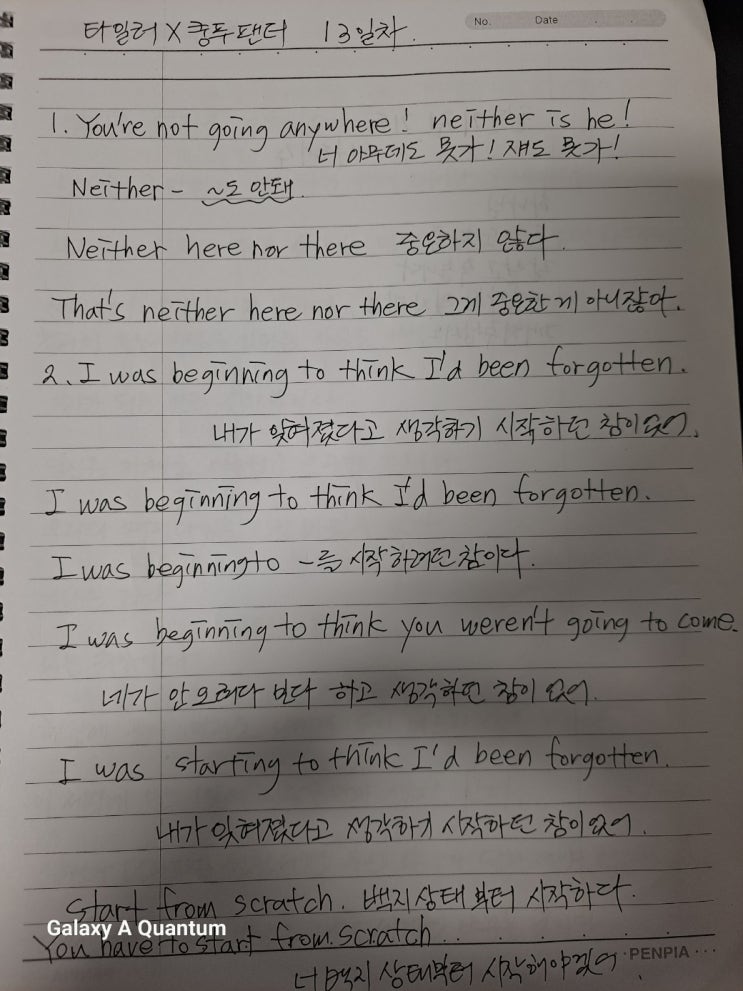 No. Date
타일러 X 쿵푸팬더 13일차.
1. You're not going anywhere! neither is he!
너 아무데도 못가! 쟤도 못가!
Neither - ~도 안돼.
Neither here nor there 중요하지 않다.
That's neither here nor there 그게 중요한 게 아니잖아.
2. I was beginning to think I'd been forgotten.
내가 잊혀졌다고 생각하기 시작하던 참이었어.
I was beginning to think I'd been forgotten.
I was beginning to -를 시작하려던 참이다.
I was beginning to think you weren't going to come.
네가 안 오려다 보다 하고 생각하던 참이었어.
I was starting to think I'd been forgotten.
내가 잊혀졌다고 생각하기 시작하던 참이었어.
Start from scratch. 백지상태부터 시작하다.
You have to start from scratch
너 백지 상태부터 시작해야겠어.
PENPIA
Galaxy A Quantum